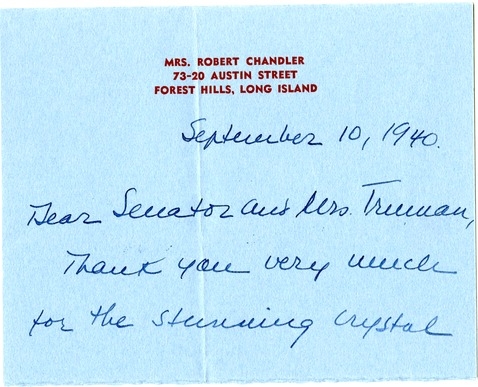 MRS. ROBERT CHANDLER
73-20 AUSTIN STREET
FOREST HILLS, LONG ISLAND
September 10, 1940.
Dear Senator and Mrs. Truman,
Thank you very much
for the stunning crystal